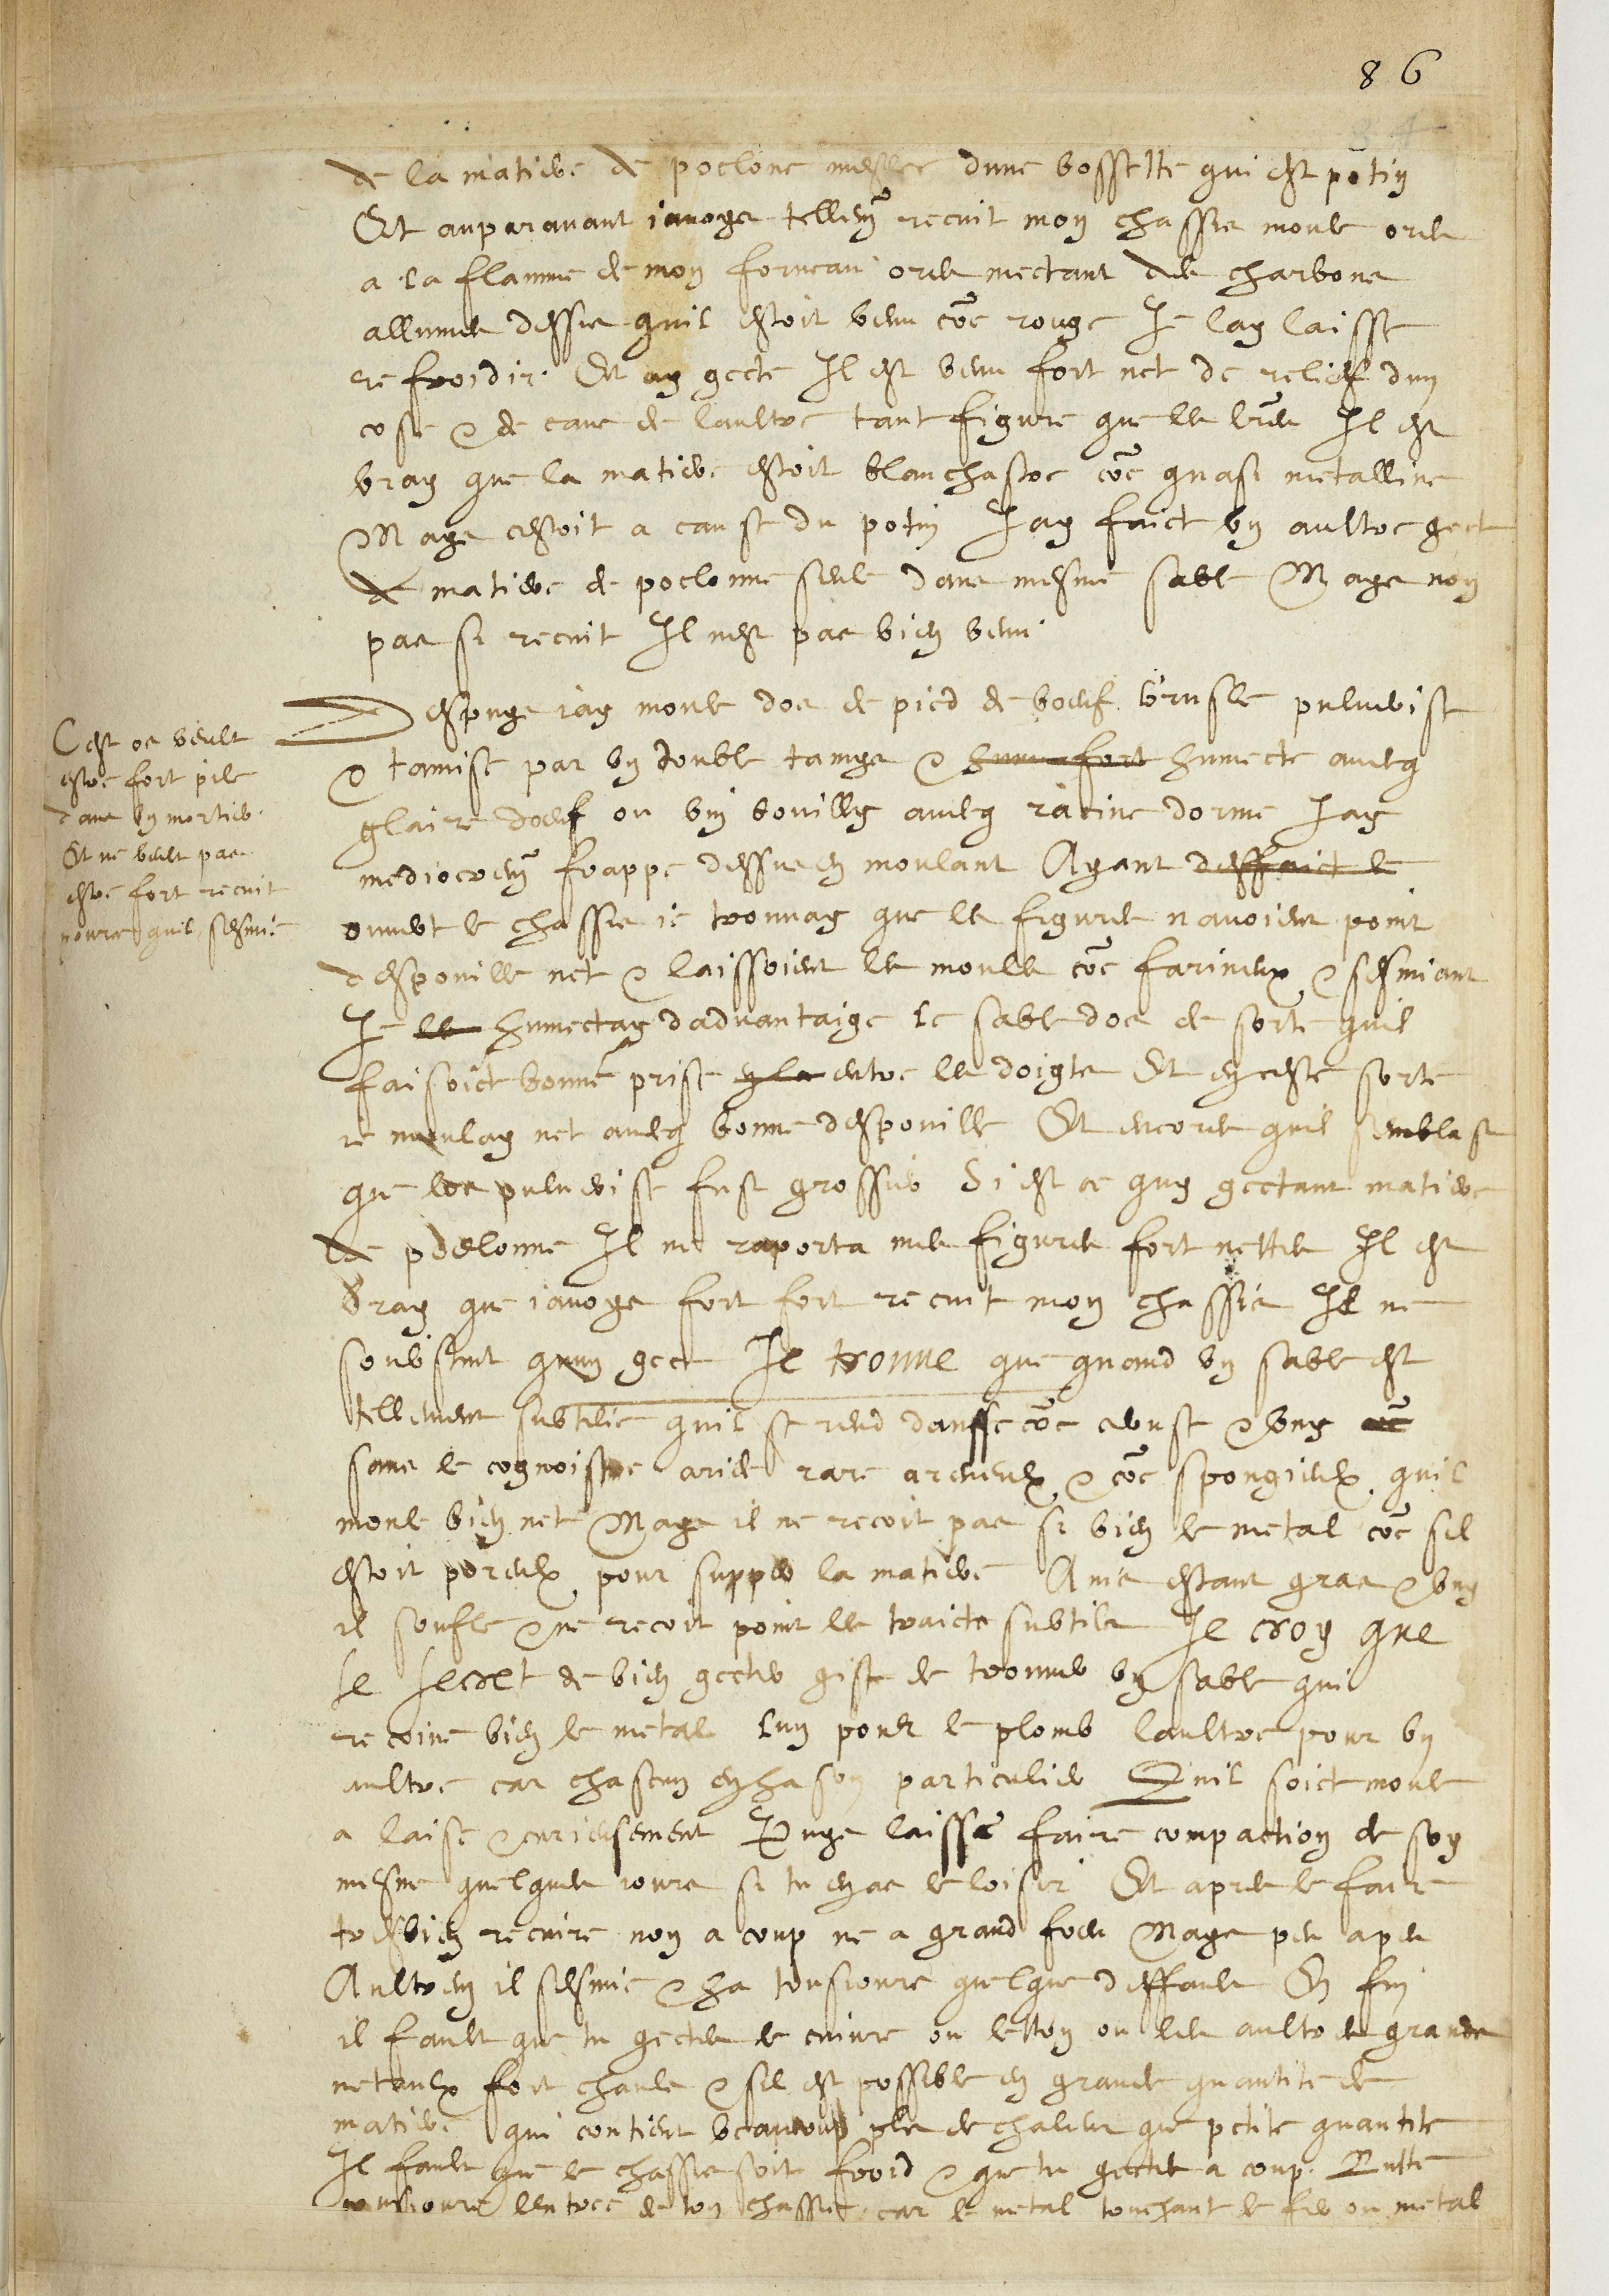 86
de la matiere de poclons meslee dune bossette qui est potin
Et auparavant javoys tellem̃ recuit mon chassis moule ores
a la flamme de mon forneau ores mectant des charbons
allumes dessus quil estoit venu cõe rouge Je lay laisse
refroidir Et ay gecte Il est venu fort net de relief dun
coste & de cave de laultre tant figure que les lr̃es Il est
vray que la matiere estoit blanchastre cõe quasi metalline
Mays cestoit a cause du potin Jay faict un aultre gect
de matiere de poclonne seule dans mesme sable Mays non
pas si recuit Il nest pas bien venu
Despuys jay moule dos de pied de boeuf brusle pulverise
& tamise par un double tamys & hume fort humecte aveq
glaire doeuf ou vin bouilly aveq racine dorme Jay
mediocrem̃ frappe dessus en moulant Ayant deffaict le
ouvert le chassis je trouvay que les figures navoient point
despouille net & laissoient les moules cõe farineux & sesmiant
Je le humectay dadvantaige le sable dos de sorte quil
faisoict bonne prise entre les doigts Et en ceste sorte
je moulay net aveq bonne despouille Et encores quil semblast
que los pulverise fust grossier Si est ce quy gectant matiere
de poelonne Il me raporta mes figures fort nettes Il est
vray que javoys fort fort recuit mon chassis Il ne
soubstint quun gect Je trouve que quand un sable est
tellement subtilie quil se rend dansse cõe ceruse & uny cõe
sans le cognoistre aride rare areneulx & cõe spongieulx quil
moule bien net Mays il ne recoit pas si bien le metal cõe sil
estoit poreulx pour supper la matiere Ains estant gras & uny
il soufle & ne recoit point les traicts subtils Je croy que
le secret de bien gecter gist de trouver un sable qui
recoive bien le metal lun pour le plomb laultre pour un
aultre car chascun en ha son particulier Quil soict moule
a laise & curieusement Puys laisse faire compaction de soy
mesme quelques jours si tu en as le loisir Et apres le faire
tresbien recuire non a coup ne a grand foeu Mays peu a peu
Aultrem̃ il sesmie & ha tousjours quelque deffault En fin
il fault que tu gectes le cuivre ou letton ou les aultres grands
metaulx fort chauls & sil est possible en grande quantite de
matiere qui contient beaucoup plus de chaleur que petite quantite
Il fault que le chassis soit froid & que tu gectes a coup. Lutte
tousjours lentree de ton chassis car le metal touchant le fer ou metal
Cest os veult
estre fort pile
dans un mortier
Et ne veult pas
estre fort recuit
pource quil sesmie